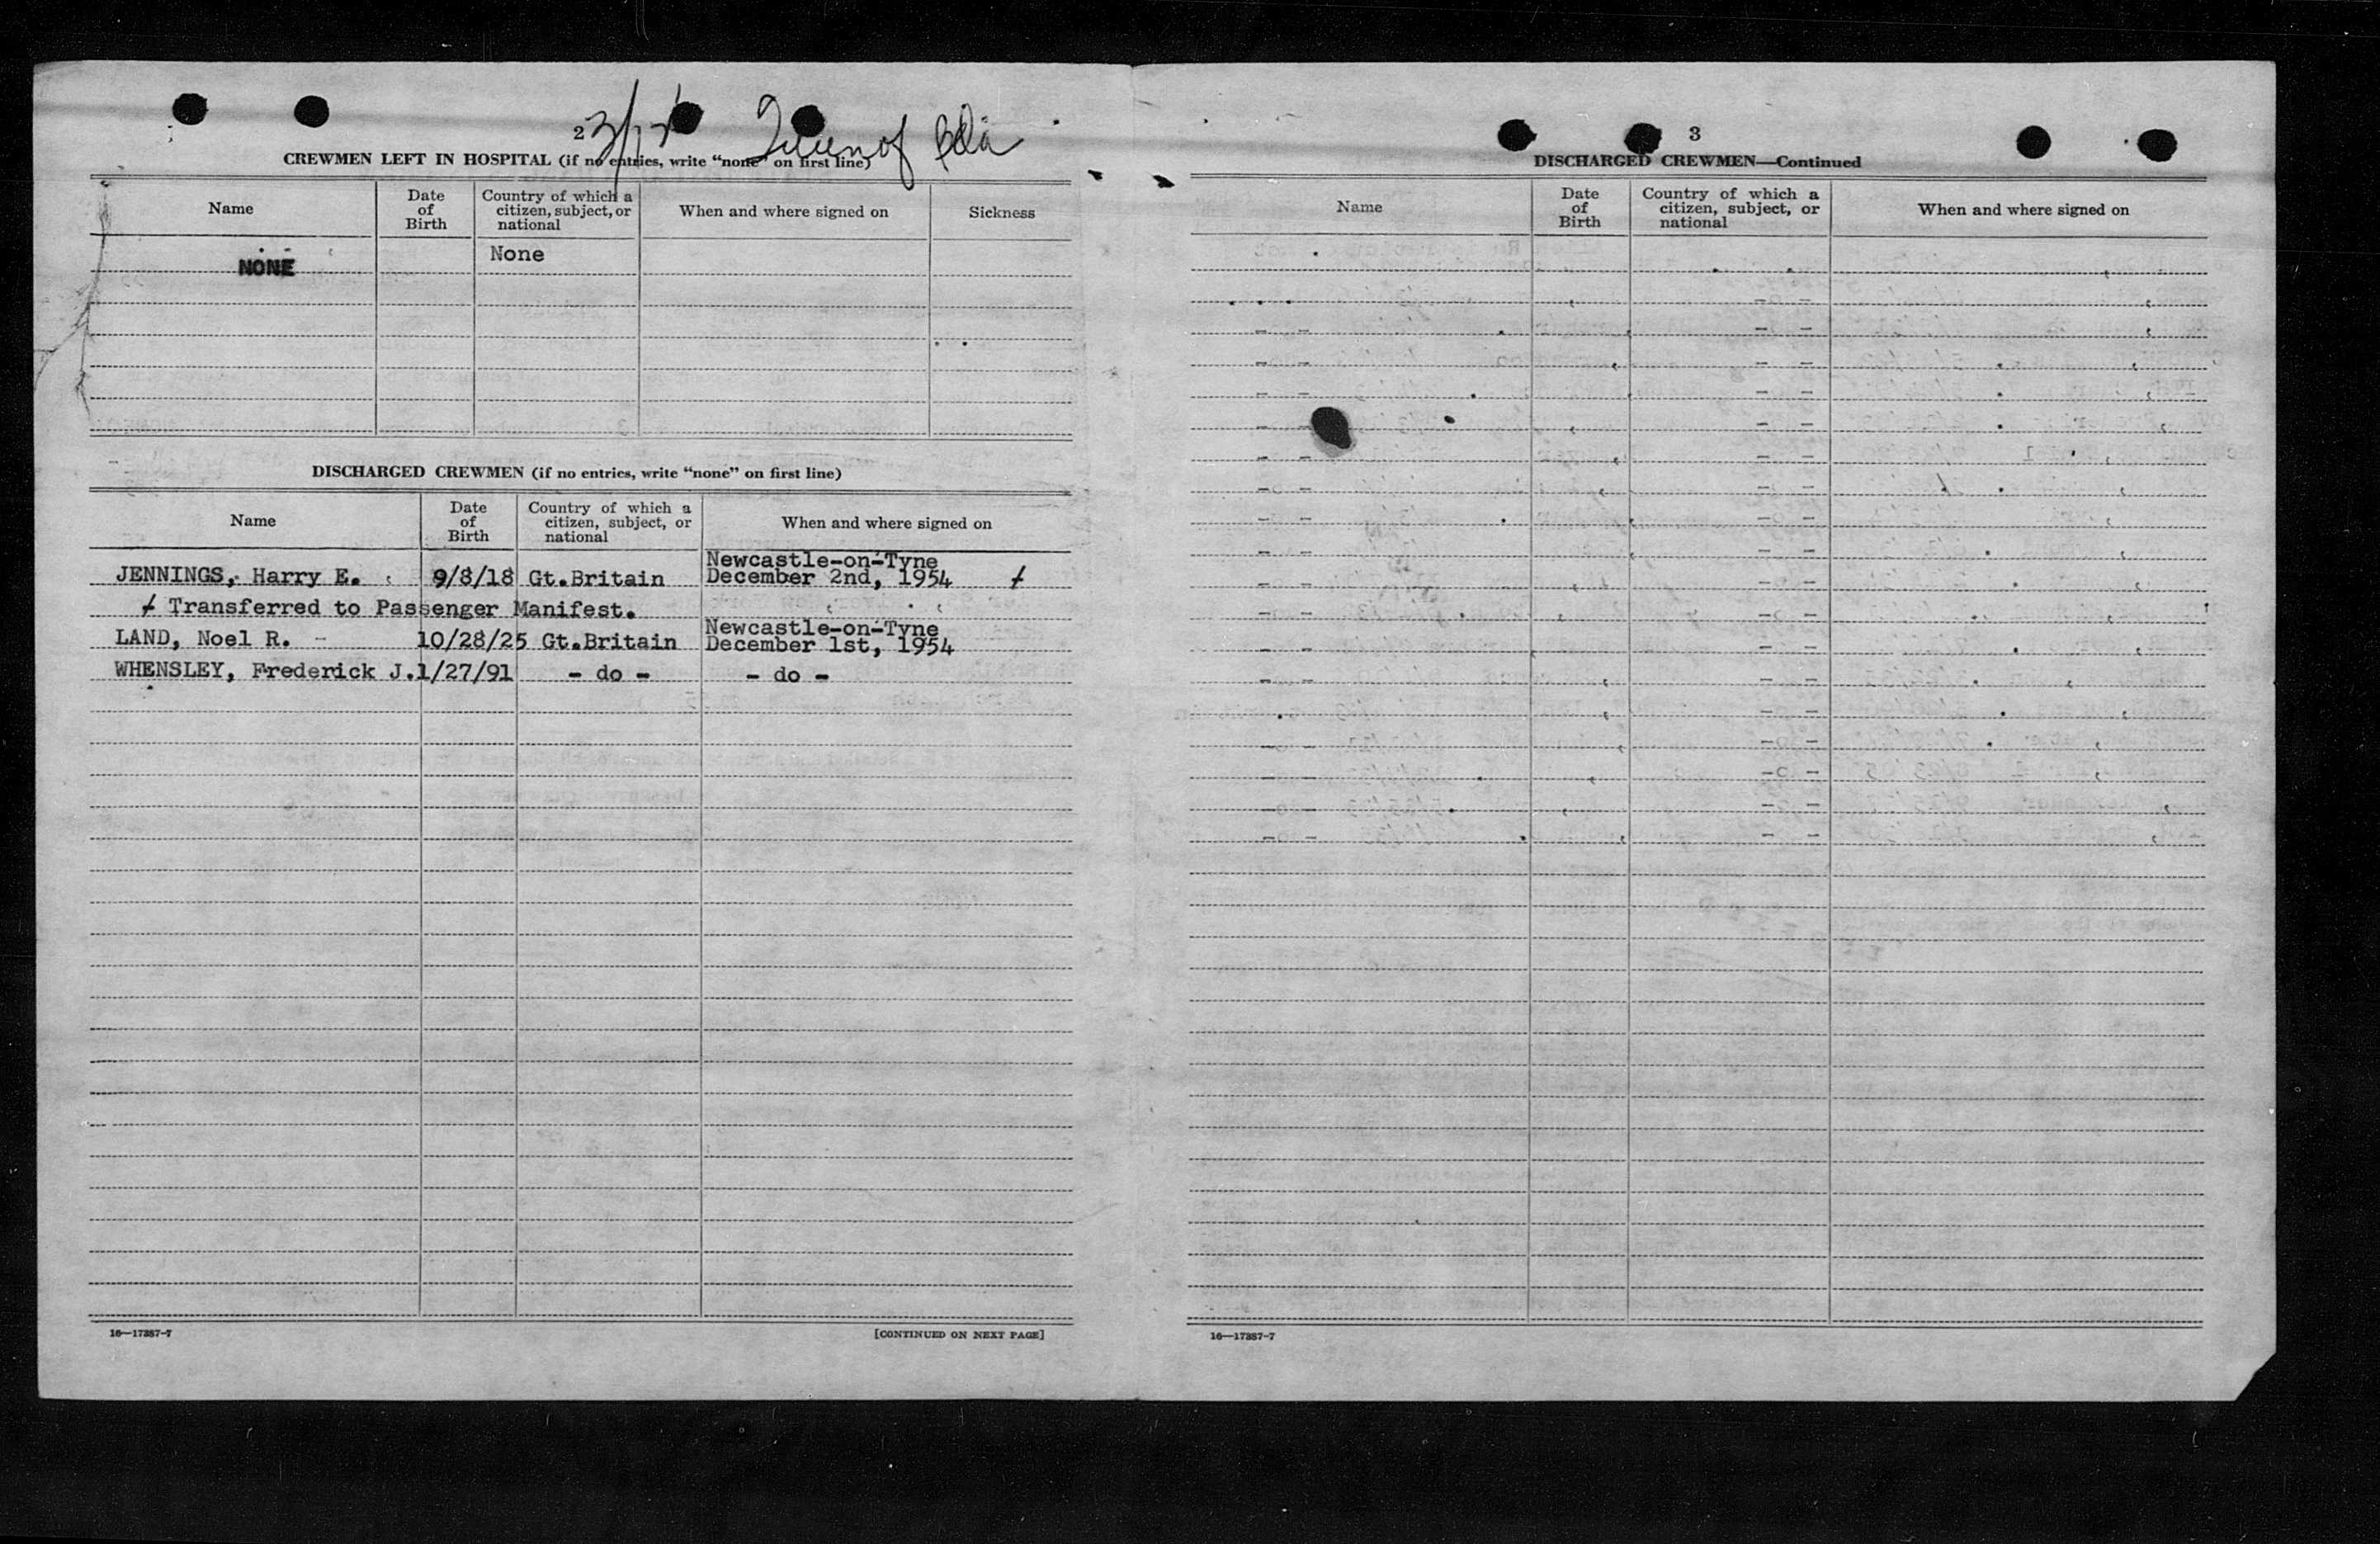 2
CREWMEN LEFT IN HOSPITAL (if no entries, write “none” on first line)
Name
Date of Birth
Country of which a citizen, subject, or national
When and where signed on
Sickness
NONE
None
DISCHARGED CREWMEN (if no entries, write “none” on first line)
Name
Date of Birth
Country of which a citizen, subject, or national
When and where signed on
Newcastle-on-Tyne
JENNINGS, Harry E. 9/8/18 Gt.Britain December 2nd, 1954 +
+ Transferred to Passenger Manifest.
Newcastle-on-Tyne
LAND, Noel R. - 10/28/25 Gt.Britain December 1st, 1954
WHENSLEY, Frederick J. 1/27/91 - do - - do -
16—17387-7
[CONTINUED ON NEXT PAGE]
3
DISCHARGED CREWMEN—Continued
Name
Date of Birth
Country of which a citizen, subject, or national
When and where signed on
16—17387-7